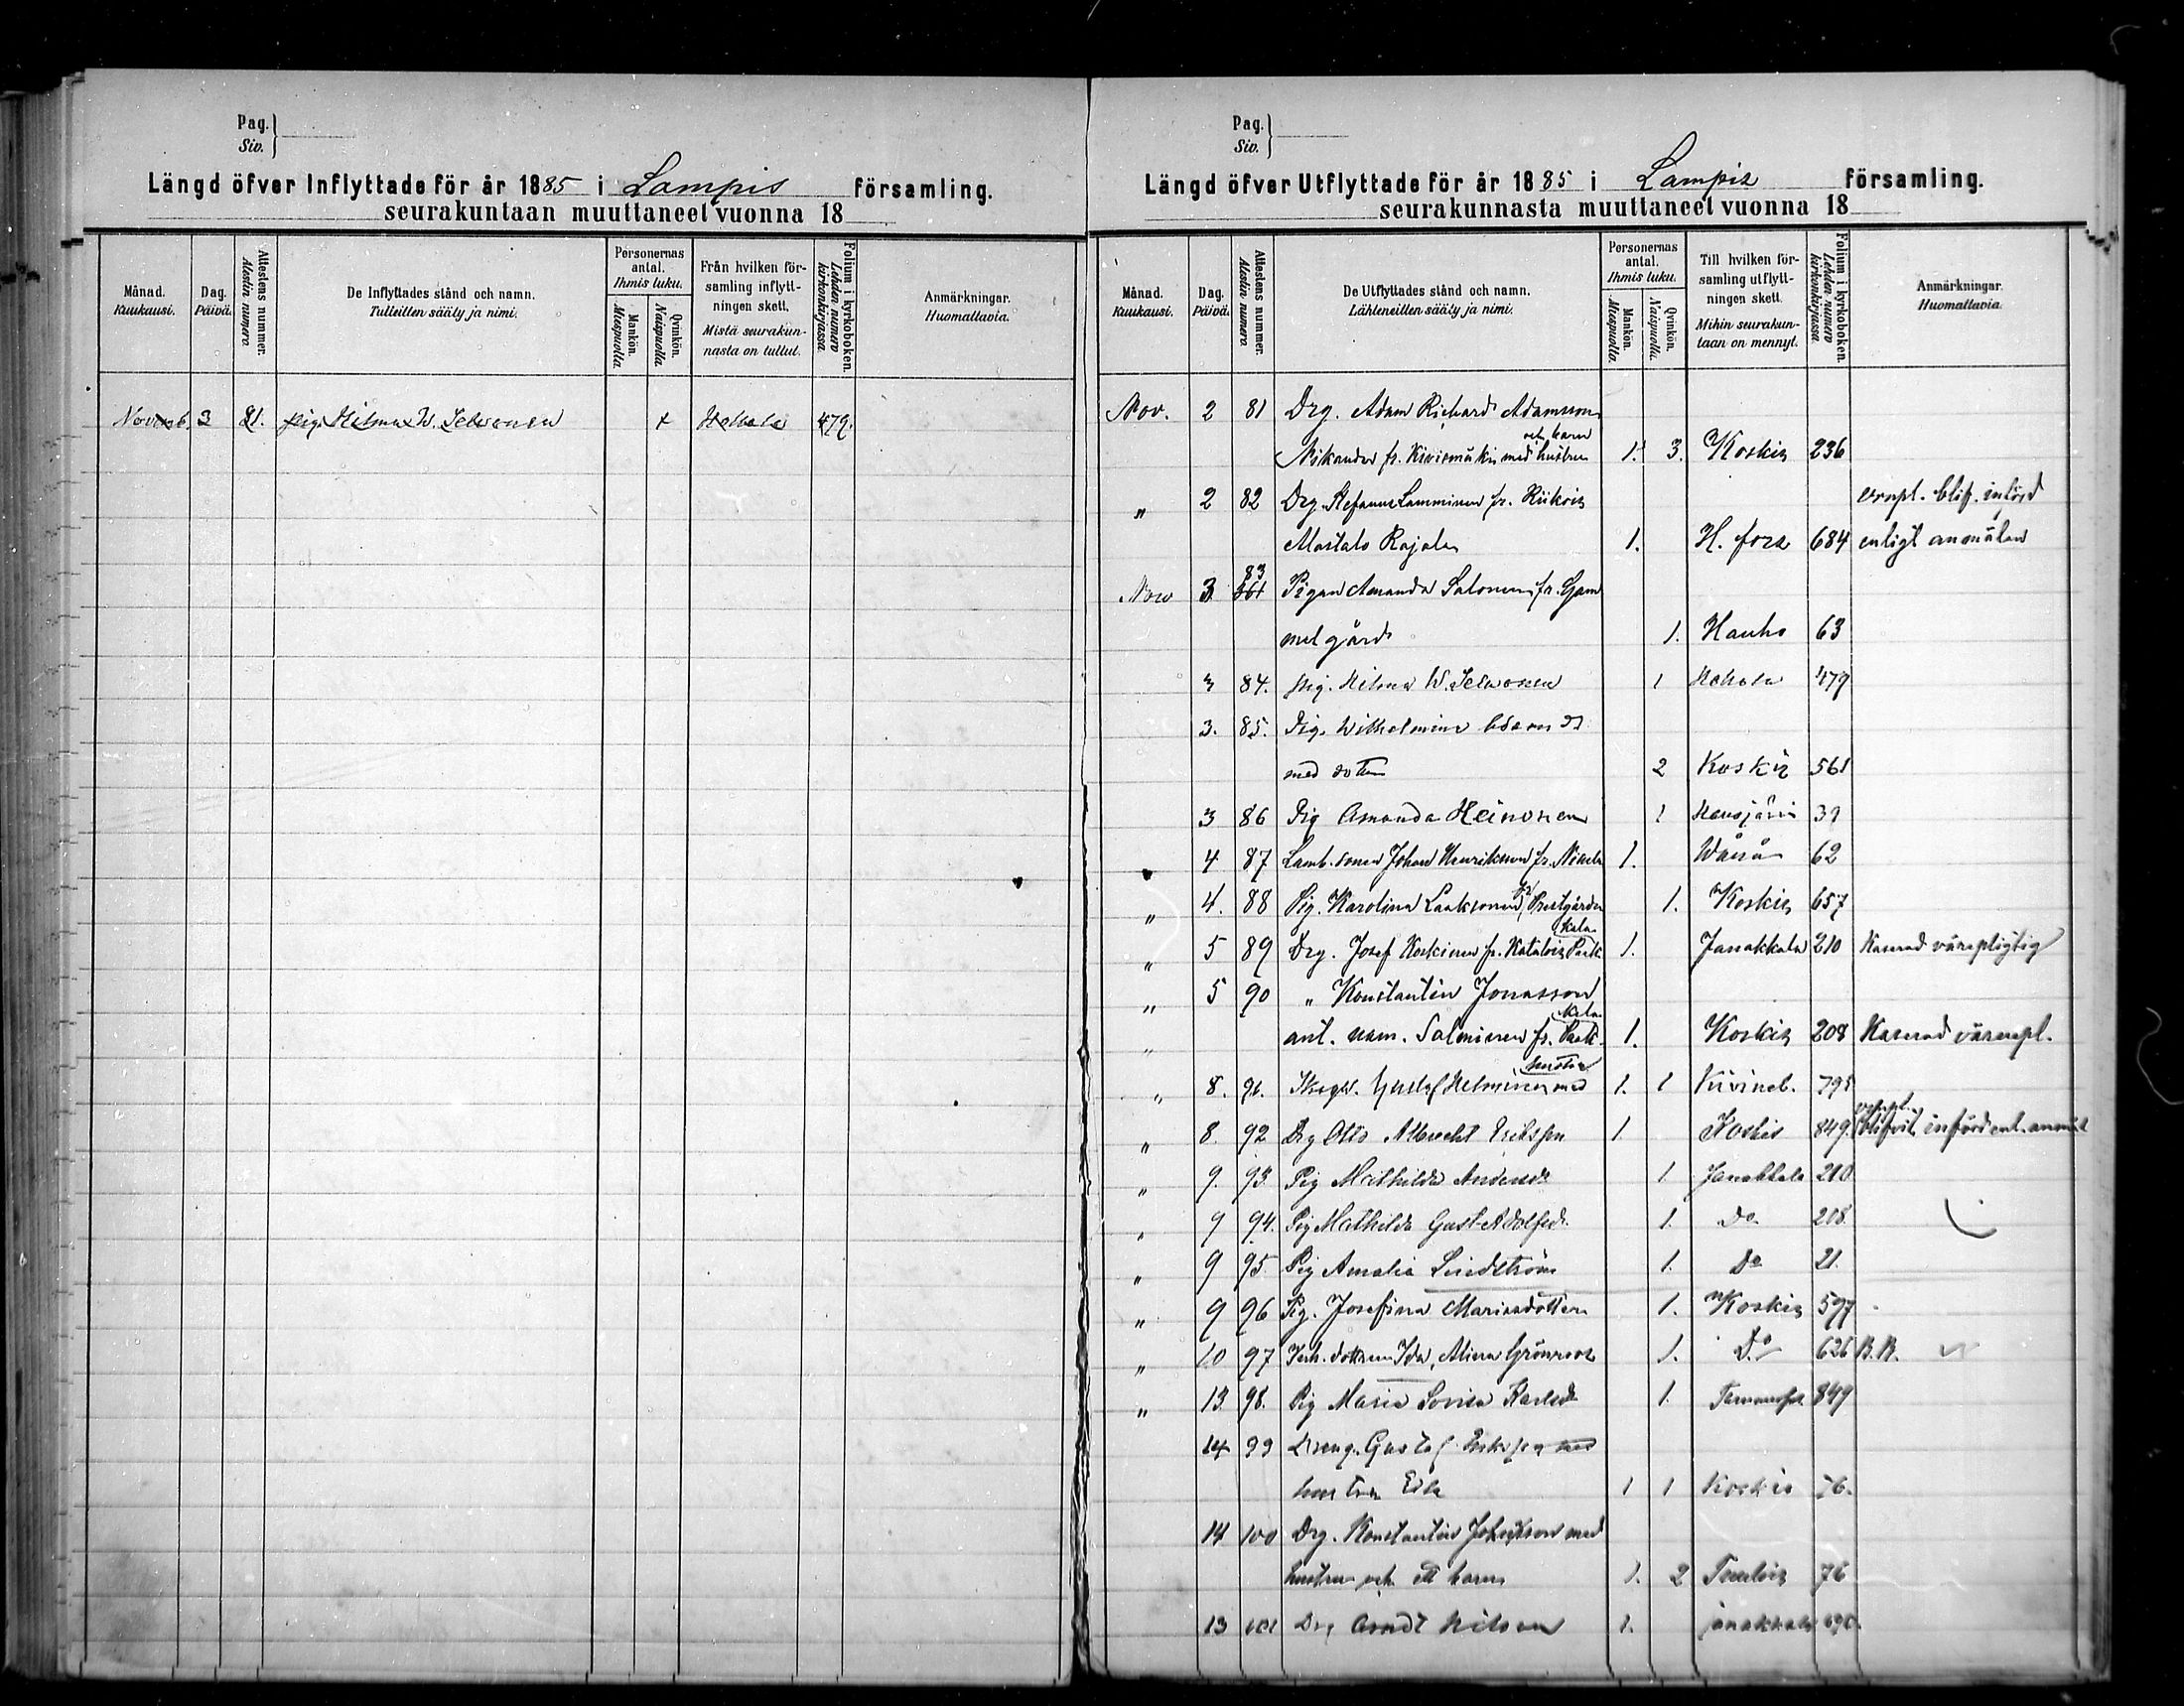 Pag.
Siv.
Längd öfver Inflyttade för år 1885 i Lampis församling.
seurakuntaan muuttaneet vuonna 18
Månad.
Kuukausi.
Dag.
Päivä.
Attestens nummer.
Alestin numero.
De Inflyttades stånd och namn.
Tulleitten sääty ja nimi.
Personernas
antal.
Ihmis luku.
Mankön.
Miespuolia.
Qvinkön.
Naispuolia.
Från hvilken för-
samling inflytt-
ningen skett.
Mistä seurakun-
nasta on tullut.
Folium i kyrkoboken.
Lehden numero
kirkonkirjassa
Anmärkningar.
Huomattavia.
Novemb. 3 81. pig. Hilma W. Selvonen + Hollola 479.
Pag.
Siv.
Längd öfver Utflyttade för år 1885 i Lampis församling.
seurakunnasta muuttaneet vuonna 18
Månad.
Kuukausi.
Dag.
Päivä.
Attestens nummer.
Alestin numero
De Utflyttades stånd och namn.
Lähteneitten sääty ja nimi.
Personernas
antal.
Ihmis luku.
Mankön.
Miespuolia.
Qvinkön.
Naispuolia.
Till hvilken för-
samling utflytt-
ningen skett.
Mihin seurakun-
taan on mennyt.
Folium i kyrkoboken.
Lehden numero
kirkonkirjassa
Anmärkningar.
Huomattavia.
Nov. 2 81 Drg. Adam Richard Adamsson
och barn
Nikander fr. Kivismäki med hustru 1. 3. Koskis 236
" 2 82 Drg. Stefanus Lamminen fr. Riikois vrnpl. blif. införd
Mastalo Rajala 1. H. fors 684 enligt anmälan
83
Nov 3 Pigan Amanda Salonen fr. Gam
melgård 1. Hauho 63
3 84. pig. Hilma W. Selvonen 1 Hollola 479
3. 85. Pig. Wilhelmina
med dotter 2 Koskis 561
3 86 Pig Amanda Heinonen 1 Hausjärvi 39
4 87 Lamb. sonen Johan Henriksson fr. 1. 62
" 4. 88 Pig. Karolina Laaksonen fr. Prestgården 1. Koskis 657
kala
" 5 89 Drg. Josef Koskinen fr. Katalois Park 1. Janakkala 210 Kaserad värnpligtig
" 5 90 " Konstantin Jonasson
kala
" ant. nam. Salminen fr. Park 1. Koskis 208 Kaserad värnpl.
hustru
" 8. 91. Gustaf Helminen med 1. 1 Kivineb. 795
värnpl.
" 8. 92 Drg Otto Albrecht Eriksson 1 Koskis 849. blifvit införd enl. anmäl
" 9. 93. Pig Mathilda Andersdr 1 Janakkala 210
" 9 94. Pig Mathilda Gust. Adolfsdr. 1. Do 208
" 9 95 Pig Amalia Lindström 1. Do 21.
" 9 96 Pig. Josefina Mariasdotter 1. Koskis 597
" 10 97 Inh. dottren Ida, Alina Grönroos 1. Do 626 B. B.
" 13 98. Pig Maria Lovisa Karlsdr 1. Tammerfors 849
14 99 Dreng. Gustaf Eriksson med
hustru Eva 1 1 Koskis 76.
14 100 Drg. Konstantin Johansson med
hustru och ett barn 1. 2 Tuulois 76
13 101 Drg Nilsson 1. Janakkala